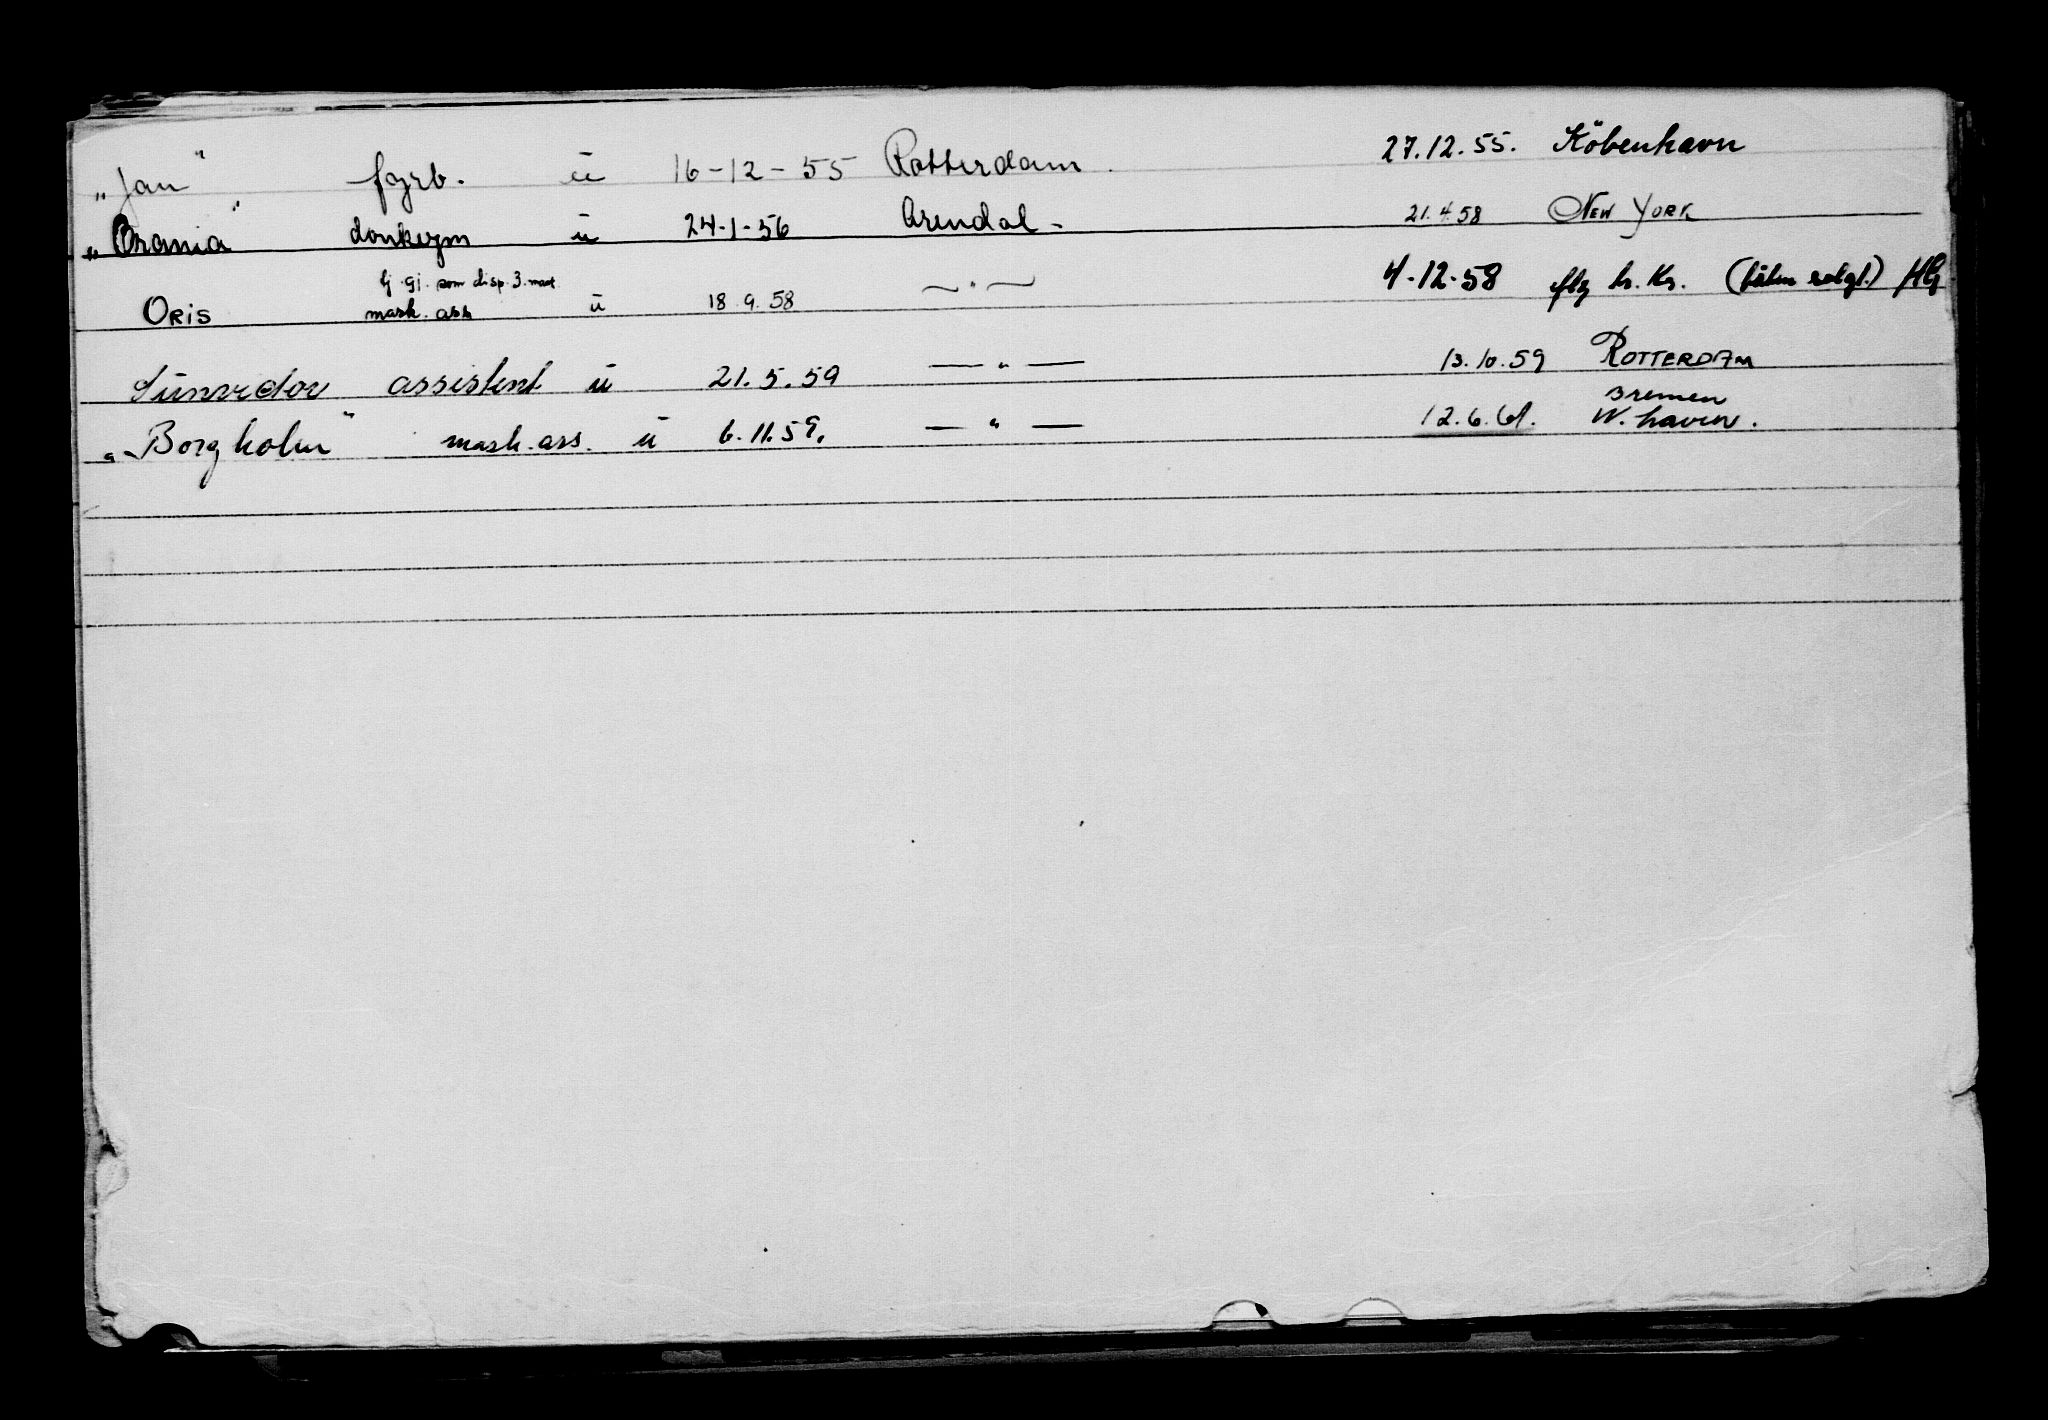 „Jan" fyrb. u 16-12-55 Rotterdam. 27.12.55. Köbenhavn
„Orania" donkeym u 24-1-56 Arendal - 21.4.58 New York
tj. gj. som disp. 3. mask
Oris mask. ass u 18.9.58 — " — 4-12-58 flg br. Kr. HG
assistent u 21.5.59 — " — 13.10.59 Rotterdam
„Borgholm" mask. ass. u 6.11.59. — " — 12.6.61. Bremen W. haven.